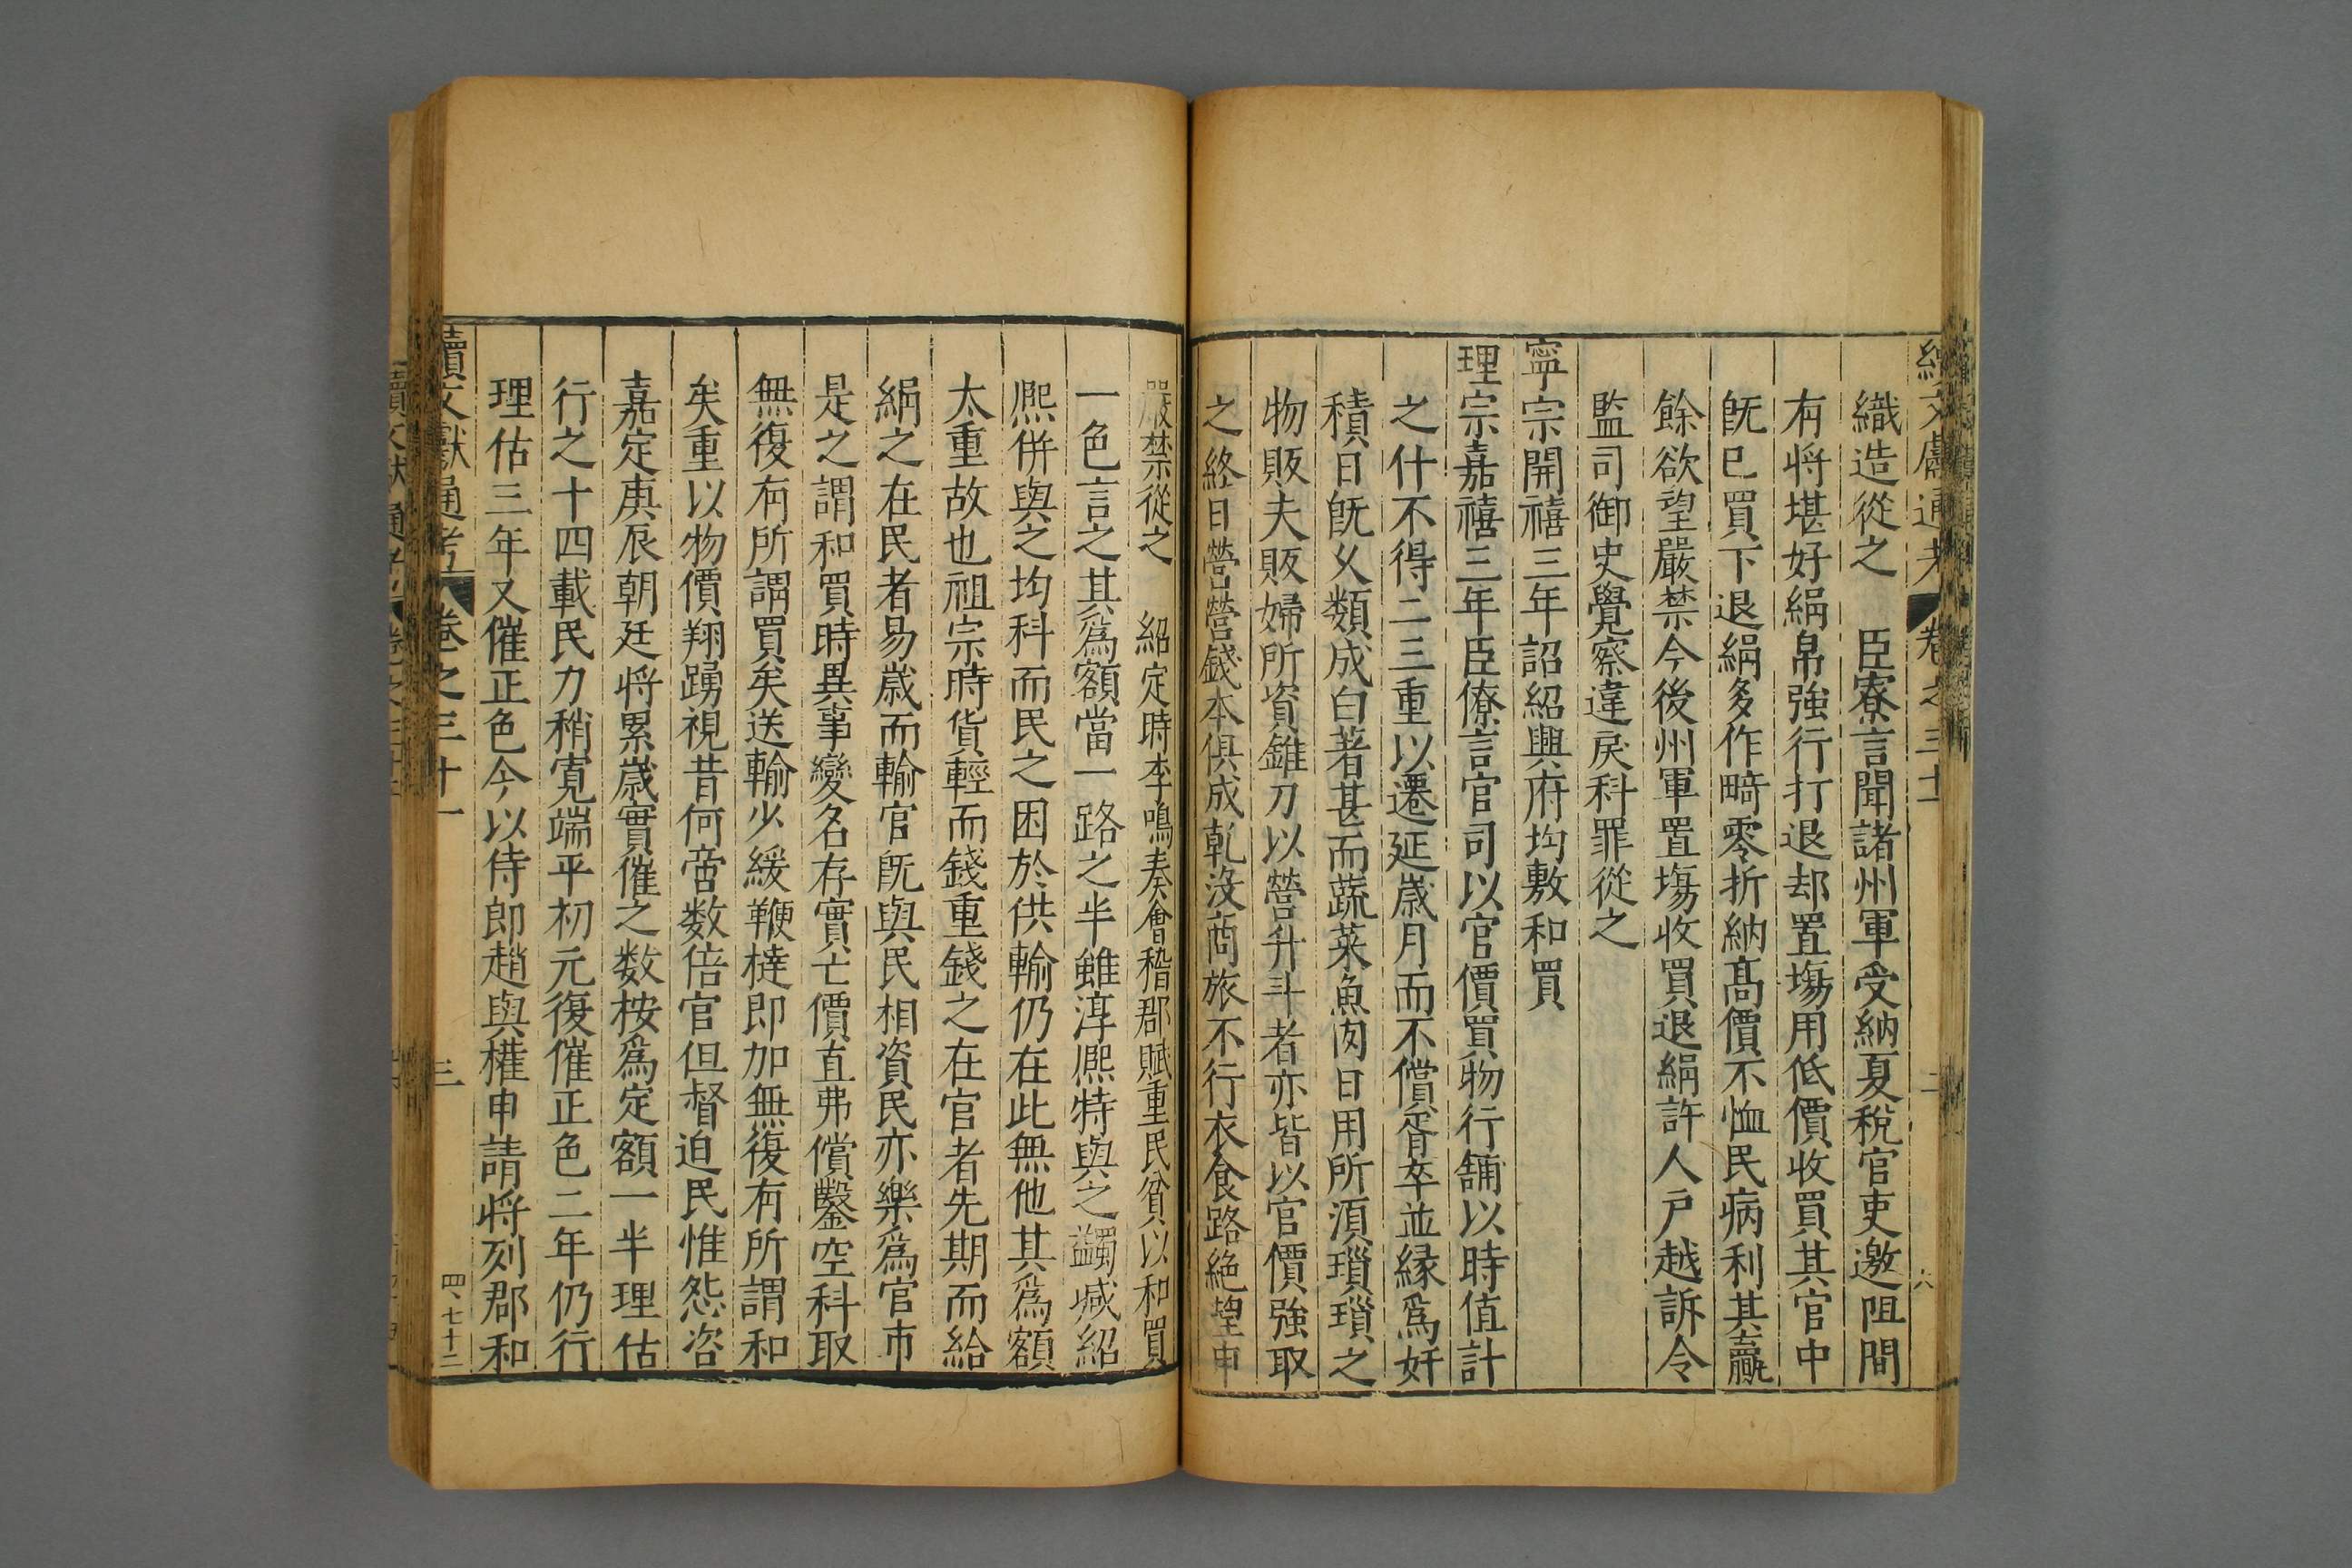 續文獻通考 卷之三十一 二 六
織造從之 臣寮言聞諸州軍受納夏稅官吏邀阻間
有將堪好絹帛強行打退却置塲用低價收買其官中
旣已買下退絹多作畸零折納髙價不恤民病利其贏
餘欲望嚴禁今後州軍置塲收買退絹許人戸越訴令
監司御史覺察違戾科罪從之
寧宗開禧三年詔紹興府均敷和買
理宗嘉禧三年臣僚言官司以官價買物行舖以時值計
之什不得二三重以遷延歲月而不償胥卒並縁爲奸
積日旣久類成白著甚而蔬菜魚肉日用所湏瑣瑣之
物販夫販婦所資錐刀以營升斗者亦皆以官價強取
之終日營營錢本俱成乾沒商旅不行衣食路絶望申
嚴禁從之 紹定時李鳴奏會稽郡賦重民貧以和買
一色言之其爲額當一路之半雖淳熈特與之蠲减紹
熈併與之均科而民之困於供輸仍在此無他其爲額
太重故也祖宗時貨輕而錢重錢之在官者先期而給
絹之在民者易歲而輸官旣與民相資民亦樂爲官市
是之謂和買時異事變名存實亡價直弗償鑿空科取
無復有所謂買矣送輸少緩鞭撻即加無復有所謂和
矣重以物價翔踴視昔何啻数倍官但督迫民惟怨咨
嘉定庚辰朝廷將累歲實催之数桉爲定額一半理估
行之十四載民力稍寛端平初元復催正色二年仍行
理估三年又催正色今以侍郎趙與懽申請將刻郡和
續文獻通考 卷之三十一 三 四、七十二